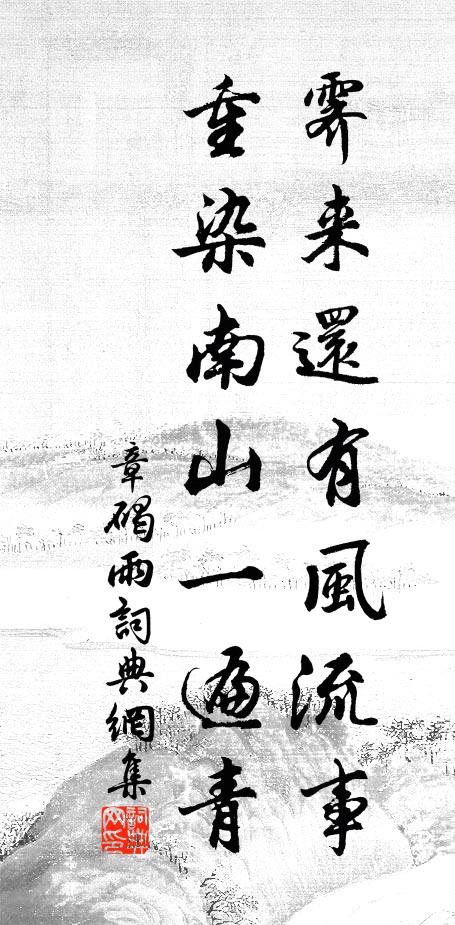 霽来還有風流事
重染南山一遍青
章碣雨詞典網集